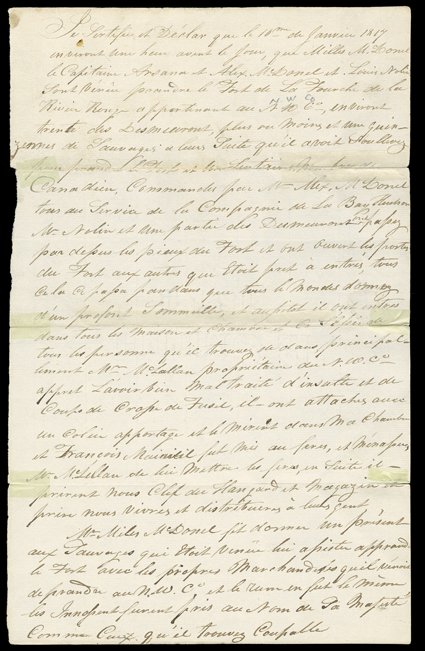 Je Certifie et Déclar que le 10me de Janvier 1817
environt Une heur avant le Jour, que Miles McDonel
le Capitaine Arsana et Alex. McDonel et Louis Nolin
Sont Vénue prandre le Fort de La Fourche de la
Rivier Rouge appartenant au N.W. Co., environt
trente des Desmeuront, plus ou Moins et une Quin-
zennes de Sauvages à leurs Suite qu'il avoit
le Fort
Canadien, Commandes par Mr. Alex. McDonel
tous au Service de la Compagnie de La Baye
Mr. Nolin et Une partie des Desmeuront passez
par dessus les pieux du Fort et ont Ouvert les portes
du Fort aux autres que Etoit pret à entrez, tous
Cela Ce papa pandans que tous le Monde dormez
d'un profont Sommeille, et aussitot il ont entrez
dans tous les Maison et Chamber et
tous les personne qu'il trouvez de dans principal-
lement Mr. McLellan propriétaire du N.W. Co.
appret L'avoir bien Mal traité d'insulte et de
Coups de Crosse de Fusil, il ont attachez avec
un Colier apportage et le Mirent dans Ma Chambre
et François fut mis au feres, et Menasser
Mr. McLellan de lui Mettre les fers, en Suite il
prirent nous Clef du Hangard et Magazin et
prire nous Vivres et distribuères à leurs gent
Mr. Miles McDonel fit donner un Présent
aux Sauvages qui Etoit Venue lui apister apprandre
le Fort avec les propres Marchandises qu'il venoit
de prandre au N.W. Co. et le rum en fut le Même
les Innossent furent pris au Nom de Sa Majesté
Comme Ceux qu'il trouvez Coupable